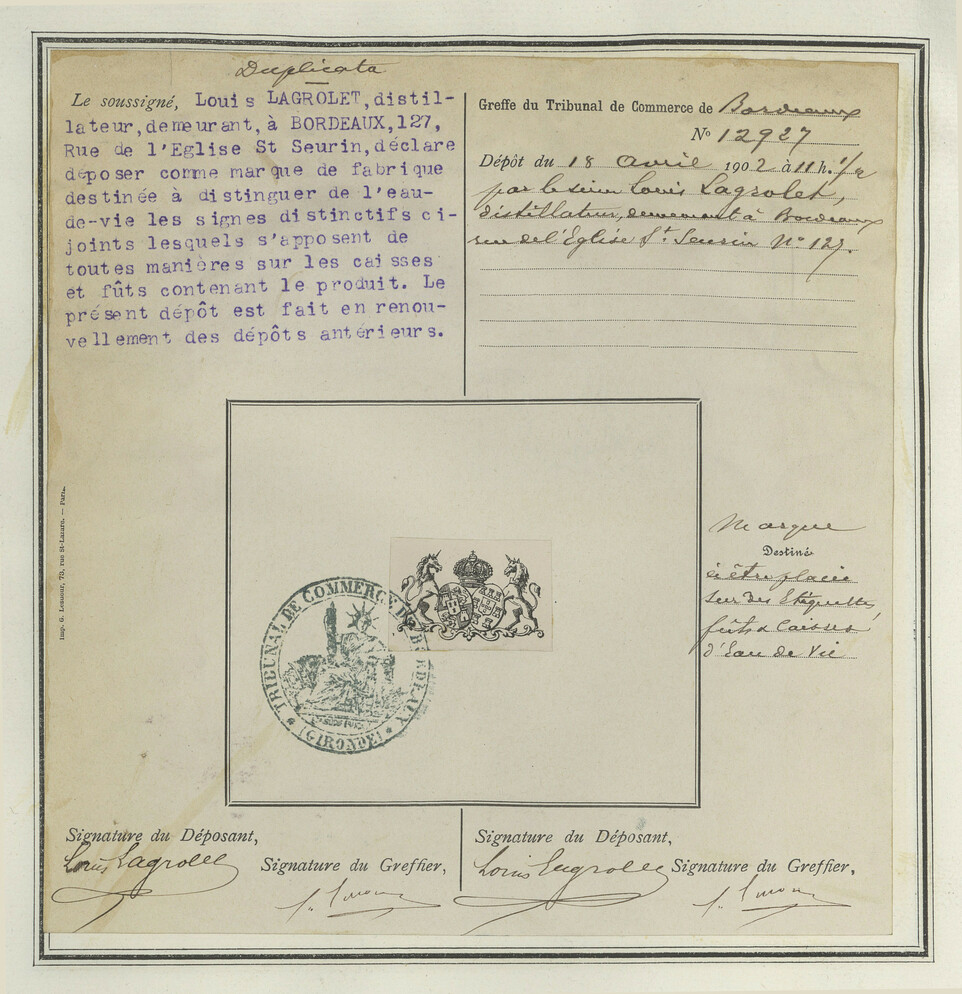 Duplicata
Le soussigné, Louis LAGROLET,distil-
lateur,demeurant,à BORDEAUX,127,
Rue de l'Eglise St Seurin,déclare
déposer comme marque de fabrique
destinée à distinguer de l'eau-
de-vie les signes distinctifs ci-
joints lesquels s'apposent de
toutes manières sur les caisses
et fûts contenant le produit. Le
présent dépôt est fait en renou-
vellement des dépôts antérieurs.
Greffe du Tribunal de Commerce de Bordeaux
No 12927
Dépôt du 18 avril 1902 à 11 h. 1/2
par le sieur Louis Lagrolet,
distillateur, demeurant à Bordeaux
rue de l'Eglise St. Seurin No 127.
Imp. G. Lemour, 73, rue St-Lazare. — Paris.
TRIBUNAL DE COMMERCE DE BORDEAUX
(GIRONDE)
Marque
Destiné
à être placée
sur des Etiquettes,
fûts & Caisses
d'Eau de Vie
Signature du Déposant,
Louis Lagrolet
Signature du Greffier,
Signature du Déposant,
Louis Lagrolet
Signature du Greffier,